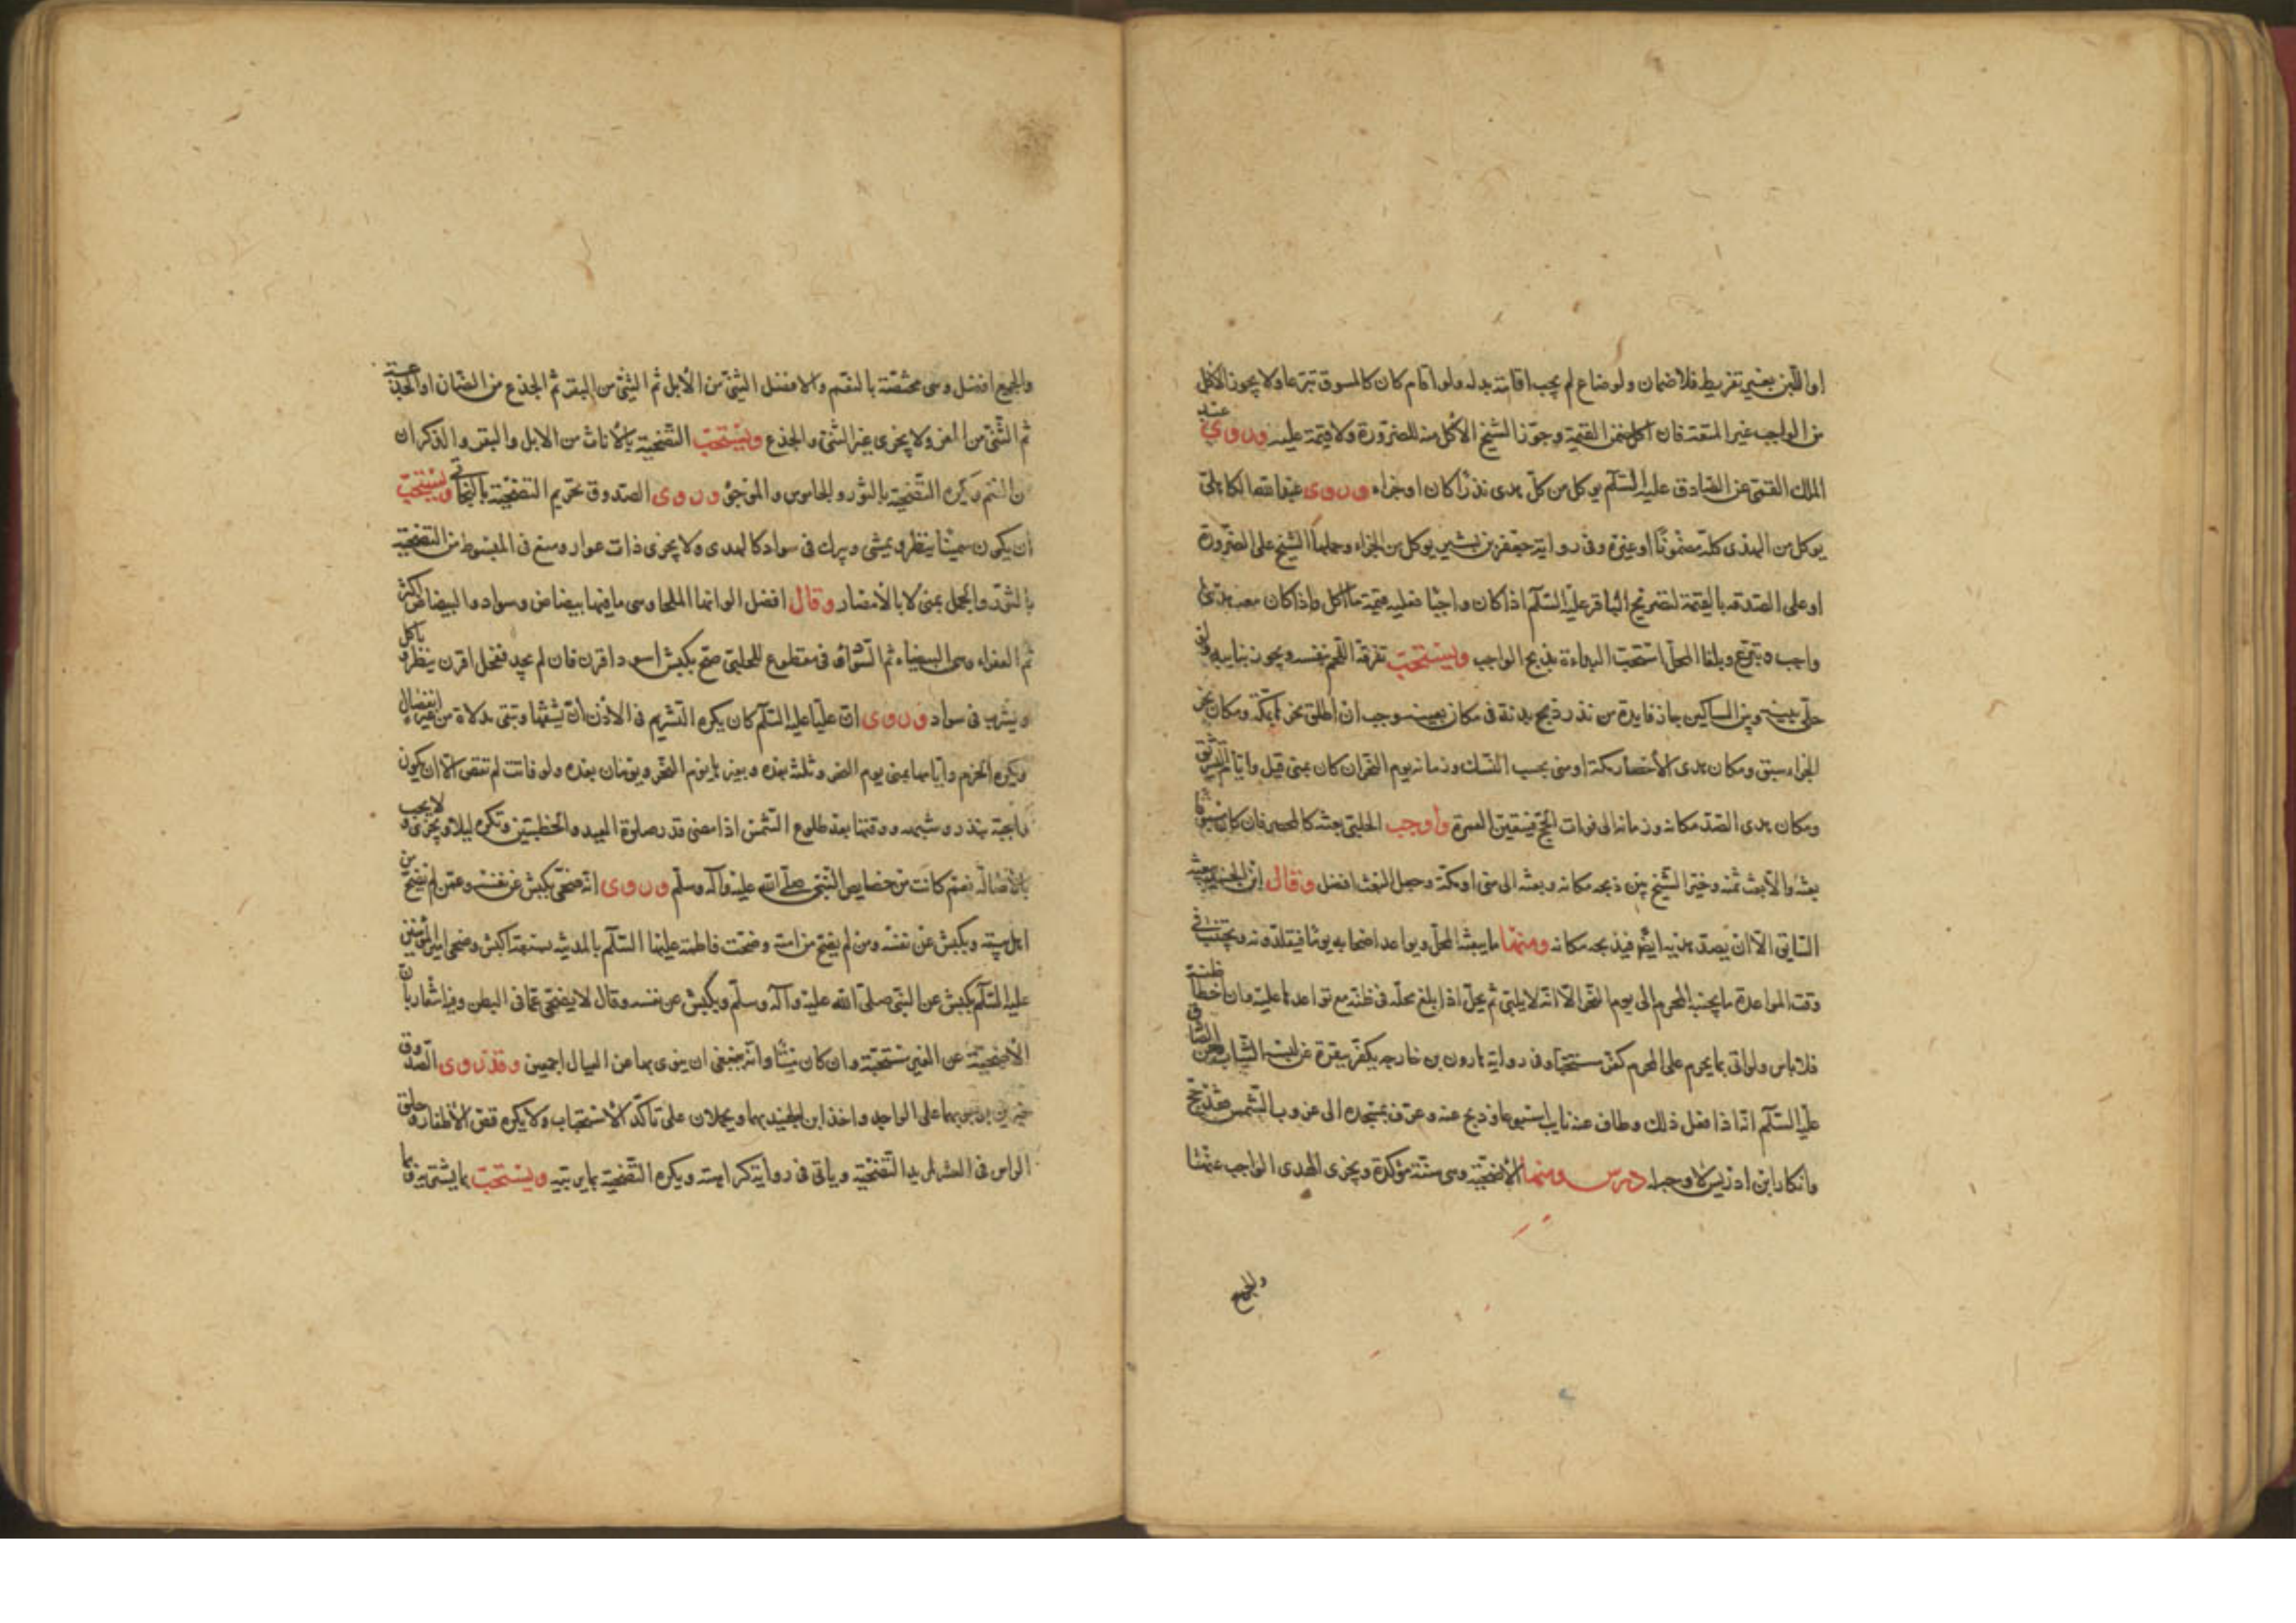 او اللبن بغير تفريط فلا ضمان ولو ضاع لم يجب اقامة بدله ولو اقام كان كالمسوق تبرعا ولا يجوز الاكل
من الواجب غير المتعة فان اكل ضمن القيمة وجوّز الشيخ الاكل منه للضرورة ولا قيمة عليه وروى عبد
الملك القمي عن الصادق عليه السلم يوكل من كل هدى نذرًا كان او جزاء وروى عبد الله الكاهلى
يوكل من الهدى كله مضمونًا او غيره وفى رواية جعفر بن بشير يوكل من الجزاء وحملها الشيخ على الضرورة
او على الصدقه بالقيمة لتصريح الباقر عليه السلم اذا كان واجبًا فعليه قيمة ما اكل واذا كان معه هدى
واجب وتبرع وبلغا المحل استحبت البداءة بذبح الواجب ويستحب تفرقة اللحم بنفسه ويجوز بنايبه ولو
خلّى بينه وبين المساكين جاز فايدة من نذر ذبح بدنة فى مكان بعينه وجب ان اطلق نحر بمكة ومكان نحر
الجزاء سبق ومكان هدى الاحصار مكة او منى بحسب النسك وزمانه يوم النحر ان كان بمنى قيل وايام التشريق
ومكان هدى الصد مكانه وزمانه الى فوات الحج فيتعين العمرة واوجب الحلبى بعثه كالمحصر فان كان سوقا
بعثه والا بعث ثمنه وخير الشيخ بين ذبحه مكانه وبعثه الى منى او مكة وجعل البعث افضل وقال ابن الجنيد يبعثه
السايق الا ان يصد هديه ايضًا فيذبحه مكانه ومنها ما يبعثه المحل ويواعد اصحابه يوما فيقلدونه ويجتنب فى
وقت المواعدة ما يجتنبه المحرم الى يوم النحر الا انه لا يلبى ثم يحل اذا بلغ محله فى ظنه مع تواعدها عليه وان اخطا ظنه
فلا باس ولو اتى بما يحرم على المحرم كفر مستحبًا وفى رواية هارون بن خارجه يكفر ببقرة عن لبسه الثياب وعن الصادق
عليه السلم انه اذا فعل ذلك وطاف عنه نايب اسبوعا وذبح عنه وعرف بمسجده الى غروب الشمس فقد حج
وانكار ابن ادريس لا وجه له درس ومنها الاضحية وهى سنة مؤكدة ويجزى الهدى الواجب عنها
والجمع
والجمع افضل وهى مختصة بالنعم والافضل الثنى من الابل ثم الثنى من البقر ثم الجذع من الضان او الجذعة
ثم الثنى من المعز ولا يجزى غير الثنى والجذع ويستحب التضحية بالاناث من الابل والبقر والذكران
من الغنم ويكره التضحية بالثور والجاموس والموجئ وروى الصدوق تحريم التضحية بالبخاتى ويستحب
ان يكون سمينًا ينظر ويمشى ويبرك فى سواد كالهدى ولا يجزى ذات عوار ومنع فى المبسوط من التضحية
بالثور والجمل بمنى لا بالامصار وقال افضل الوانها الملحا وهى ما فيها بياض وسواد والبياض اكثر
ثم العفراء وهى البيضاء ثم السوداء فى مقطوع للحلبى صح بكبش اسود اقرن فان لم يجد فنحل اقرن ياكل وينظر
ويشرب فى سواد وروى ان عليًا عليه السلم كان يكره التشريم فى الاذن ان تشقها وتبقى مدلاة من غير انفصال
ويكره الخرم وايامها بمنى يوم النحر وثلثة بعده وبغيرها يوم النحر ويومان بعده ولو فاتت لم تقض الا ان يكون
واجبة بنذر وشبهه ووقتها بعد طلوع الشمس اذا مضى قدر صلوة العيد والخطبتين وتكره ليلا ويجزى ولا يجب
بالاصالة نعم كانت من خصايص النبى صلى الله عليه وآله وسلم وروى انه ضحى بكبش عن نفسه وعمن لم يضح من
اهل بيته وبكبش عن نفسه ومن لم يضح من امته وضحت فاطمة عليها السلم بالمدينة سبعة اكبش وضحى امير المؤمنين
عليه السلم بكبش عن النبى صلى الله عليه وآله وسلم وبكبش عن نفسه وقال لا يضحى عما فى البطن وفيه اشعار بان
الاضحية عن الغير مستحبة وان كان ميتًا وانه ينبغى ان ينوى بها عن العيال اجمعين وقد روى الصدوق
خبرين بوجوبها على الواجد واخذ ابن الجنيد بهما ويحملان على تاكد الاستحباب ولا يكره قص الاظفار وحلق
الراس فى العشر لمريد التضحية وياتى فى رواية كراهته ويكره التضحية بما يربيه ويستحب بما يشتريه وقا